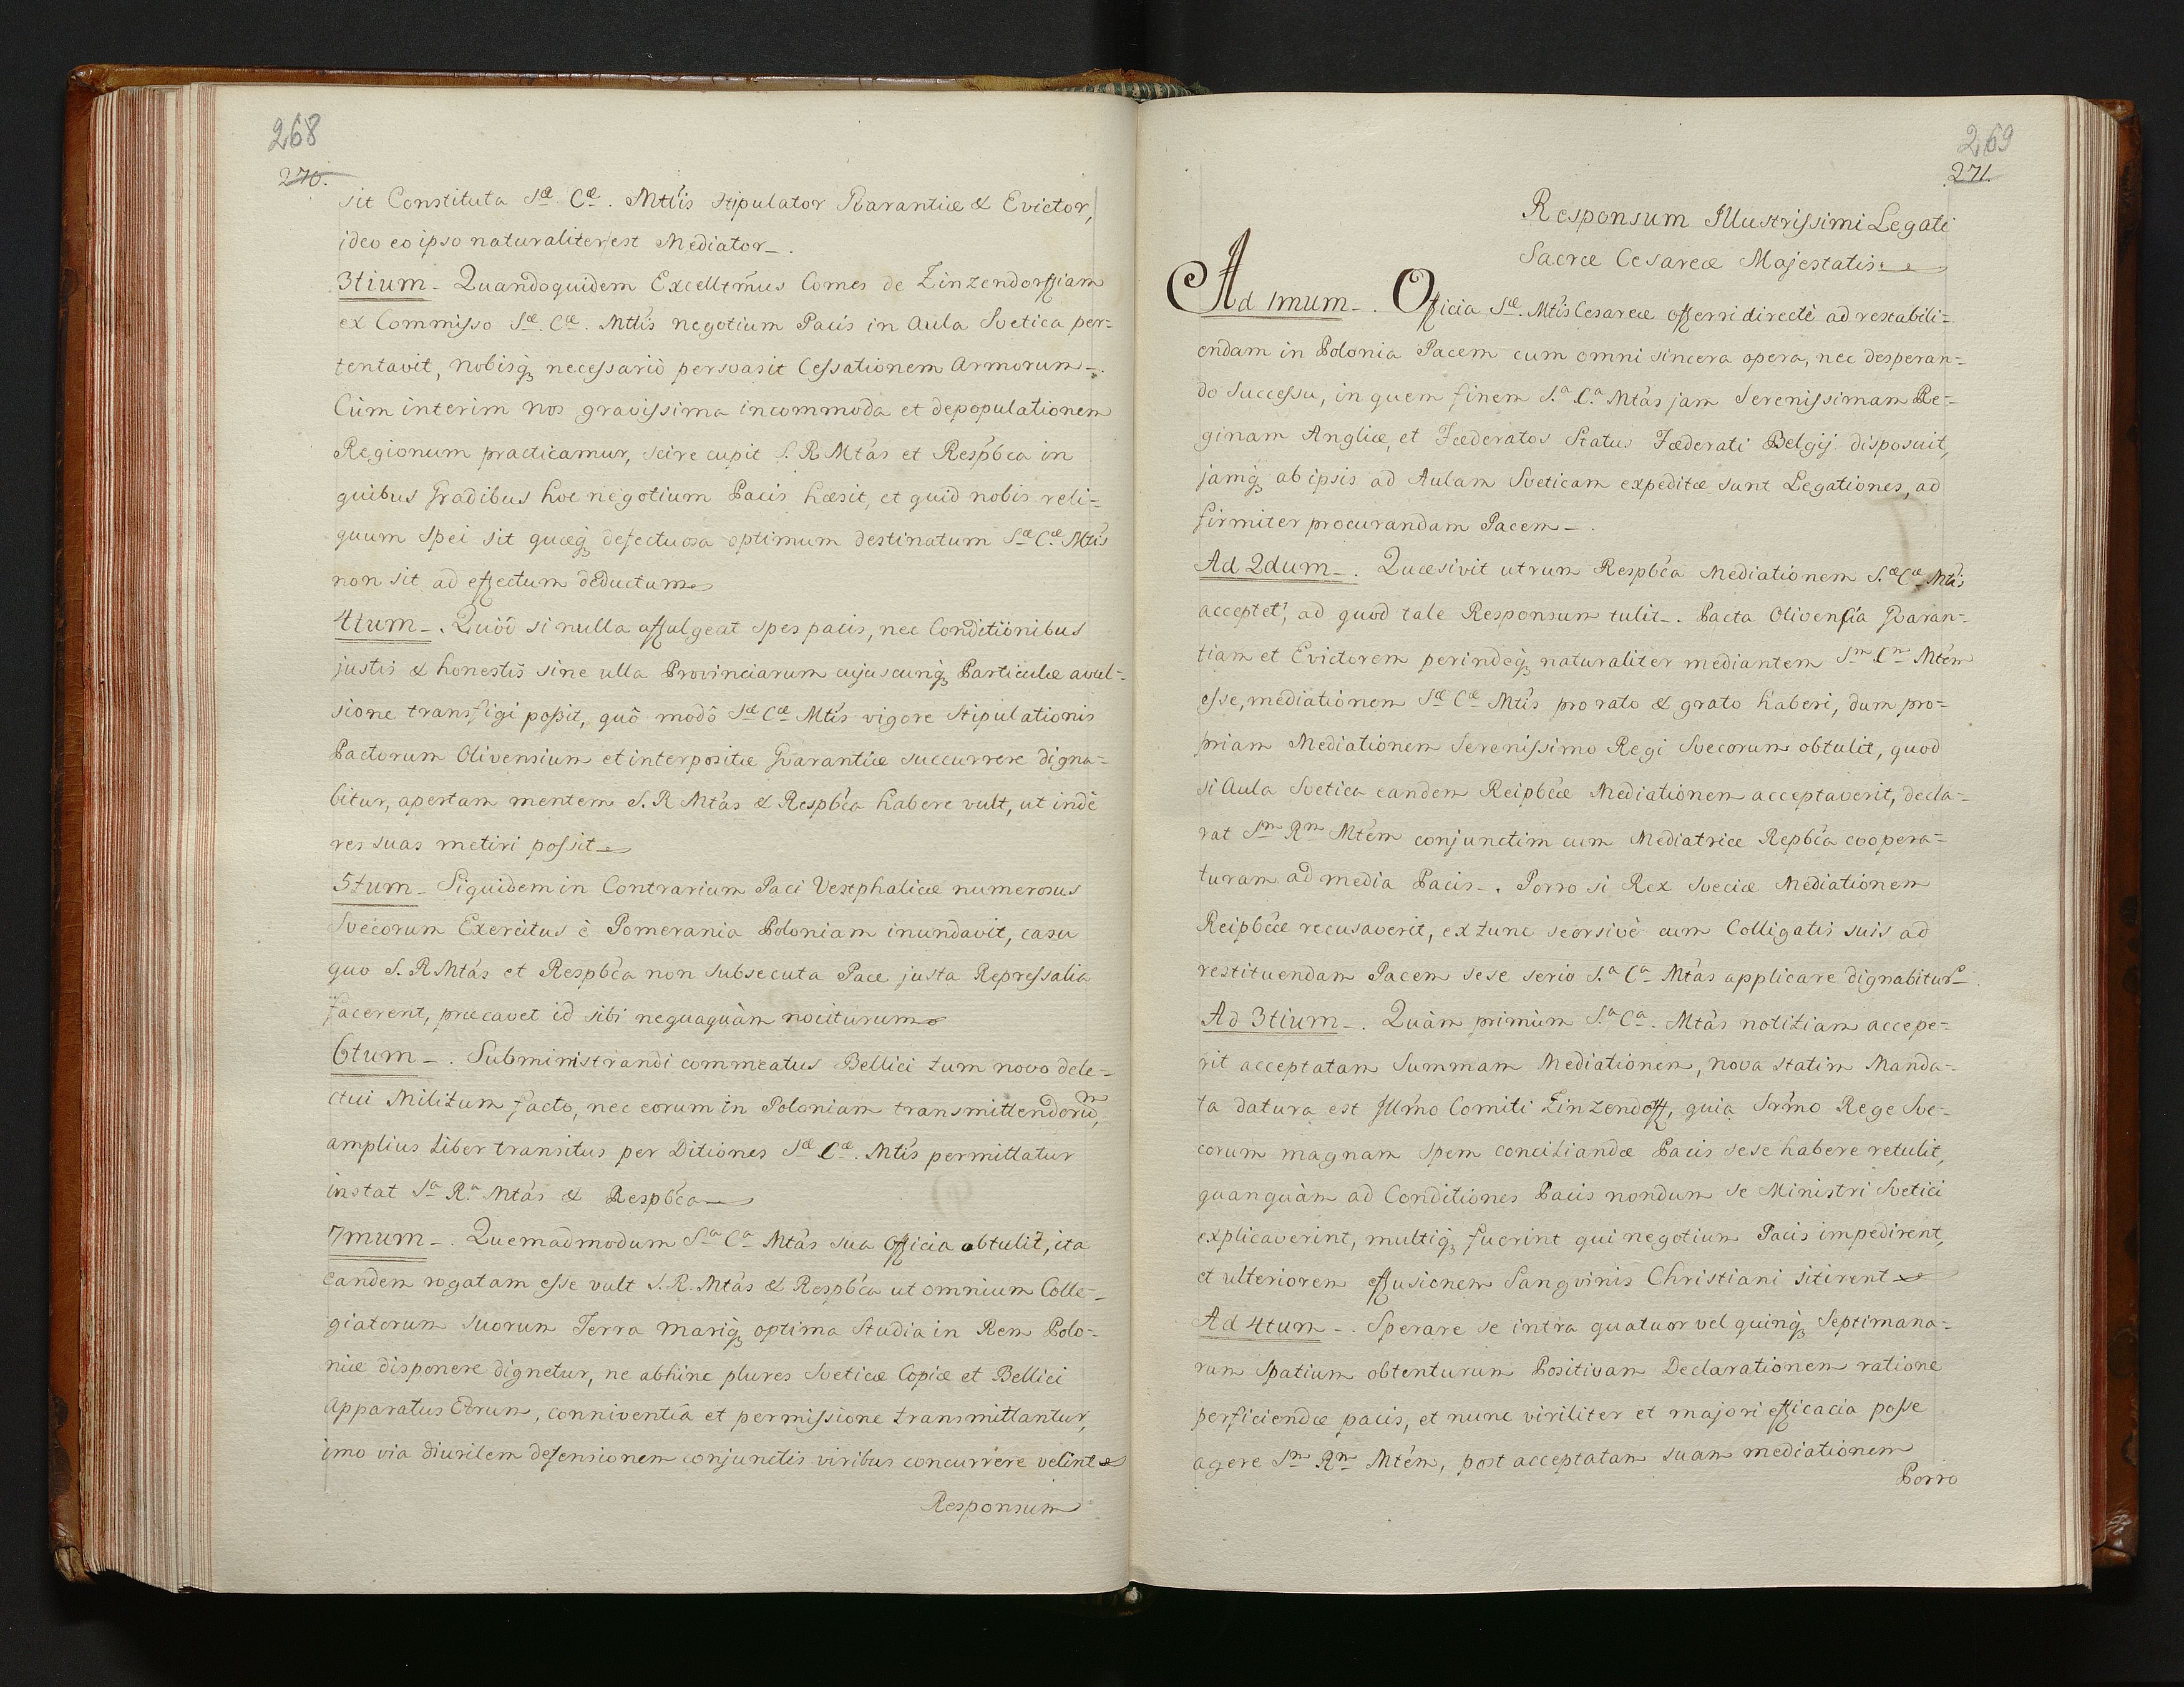 268
270.
sit Constituta Sæ Cæ. Mttis stipulator Gvarantiæ & Evictor,
ideo eo ipso naturaliter est Mediator_.
3tium_ Quandoquidem Excellt̃mus Comes de Zinzendorffiam
ex Commisso Sæ. Cæ. Mttis negotium Pacis in Aula Svetica per=
tentavit, nobisq̧ necessariò persvasit Cessationem Armorum_.
Cùm interim nos gravissima incommoda et depopulationem
Regionum practicamur, scire cupit S. R Mtás et Respb́ca in
quibus Gradibus hoc negotium Pacis hæsit, et quid nobis reli=
quum Spei sit quæq̧ defectuosa optimum destinatum Sæ Cæ Mtis
non sit ad effectum deductum
4tum_. Quòd si nulla affulgeat spes pacis, nec Conditionibus
justis & honestis sine ulla Provinciarum cujuscunq̧ Particulæ avul=
sione transfigi possit, quô modô Sæ Cæ Mtis vigore Stipulationis
Pactorum Olivensium et interpositæ Gvarantiæ succurrere digna=
bitur, apertam mentem S. R Mtás & Respb́ca habere vult, ut indè
res suas metiri possit
5tum_ Siquidem in Contrarium Paci Vestphalicæ numerosus
Svecorum Exercitus è Pomerania Poloniam inundavit, casu
quo S. R Mtás et Respb́ca non subsecuta Pace justa Repressalia
facerent, præcavet id sibi nequaquàm nociturum
6tum_. Subministrandi commeatus Bellici tum novo dele=
ctui Militum facto, nec eorum in Poloniam transmittendorũ,
amplius Liber transitus per Ditiones Sæ Cæ. Mtis permittatur
instat Sa Ra Mtás & Respb́ca
7mum_. Quemadmodum Sa Ca Mtás sua Officia obtulit, ita
eandem rogatam esse vult S. R. Mtás & Respb́ca ut omnium Colle=
giatorum suorum Terra mariq̧ optima Studia in Rem Polo=
niæ disponere dignetur, ne abhinc plures Sveticæ Copiæ et Bellici
Apparatus Eorum, conniventiâ et permissione transmittantur,
imo via diurilem defensionem conjunctis viribus concurrere velint
Responsum
269
271.
Responsum Illustrissimi Legati
Sacræ Cesareæ Majestatis
Ad 1mum_. Officia Sæ. Mtis Cesareæ offerri directè ad restabili=
endam in Polonia Pacem cum omni sincera opera, nec desperan=
do successu, in quem finem S.a C.a Mtás jam Serenissimam Re=
ginam Angliæ, et Fœderatos Status Fœderati Belgij disposuit,
jamq̧ ab ipsis ad Aulam Sveticam expeditæ sunt Legationes, ad
firmiter procurandam Pacem_.
Ad 2dum_. Quæsivit utrum Respb́ca Mediationem S.æ Cæ Mtis
acceptet, ad quod tale Responsum tulit_. Pacta Olivensia Gvaran=
tiam et Evictorem perindeq̧ naturaliter mediantem Sm Cm Mtém
esse, mediationem Sæ Cæ Mtis pro rato & grato haberi, dum pro=
priam Mediationem Serenissimo Regi Svecorum obtulit, quod
si Aula Svetica eandem Reipb́cæ Mediationem acceptaverit, decla=
rat Sm Rm Mtém conjunctim cum Mediatrice Repb́ca coopera=
turam ad media Pacis_. Porro si Rex Sveciæ Mediationem
Reipb́cæ recusaverit, ex tunc seorsivè cum Colligatis suis ad
restituendam Pacem sese serio S.a Ca Mtás applicare dignabitur_.
Ad 3tium_. Quàm primùm S.a Ca. Mtás notitiam accepe=
rit acceptatam Summam Mediationem, nova statim Manda=
ta datura est Illm̃o Comiti Zinzendoff, quia Srm̃o Rege Sve=
corum magnam Spem conciliandæ Pacis sese habere retulit,
quanquàm ad Conditiones Pacis nondum se Ministri Svetici
explicaverint, multiq̧ fuerint qui negotium Pacis impedirent,
et ulteriorem effusionem Sangvinis Christiani sitirent
Ad 4tum_. Sperare se intra quatuor vel quinq̧ Septimana=
rum Spatium obtenturum Positivam Declarationem ratione
perficiendæ pacis, et nunc viriliter et majori efficacia posse
agere Sm Rm Mtém, post acceptatam suam mediationem
Porro